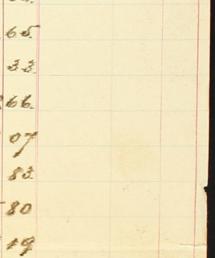 65.
33.
66.
07
83.
80
19